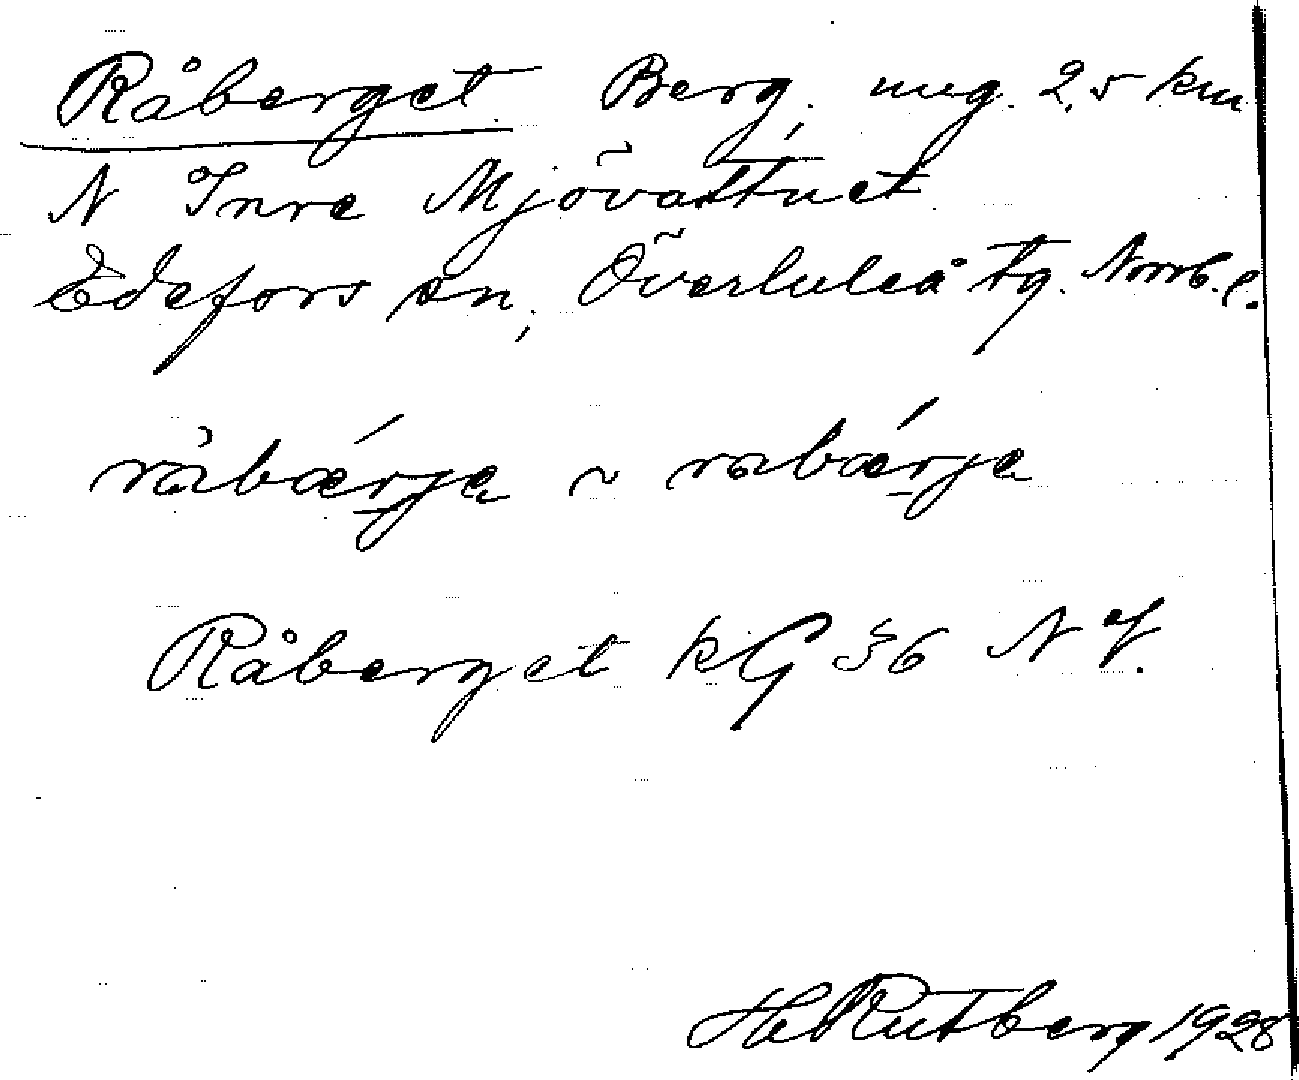 Råberget Berg, ung. 2,5 km
N Inre Mjövattnet
Edefors sn, Överluleå tg. Norrb. l.
råbærja ~ rabærja
Råberget kG 36 NV.
H Rutberg 1928